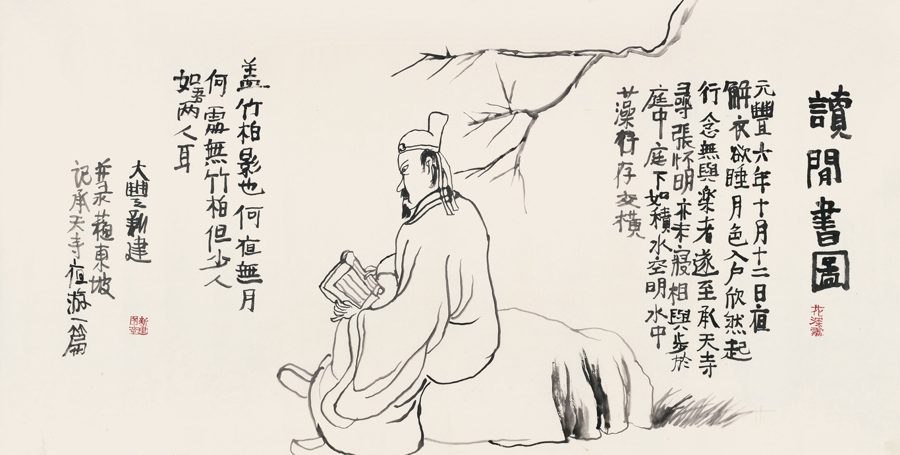 讀閒書圖
元豐六年十月十二日夜
解衣欲睡月色入户欣然起
行念無與樂者遂至承天寺
尋張怀明亦未寢相與步於
庭中庭下如積水空明水中
藻荇存交橫
盖竹柏影也何夜無月
何處無竹柏但少人
如吾两人耳
大豐新建
并录蘇東坡
记承天寺夜游一篇